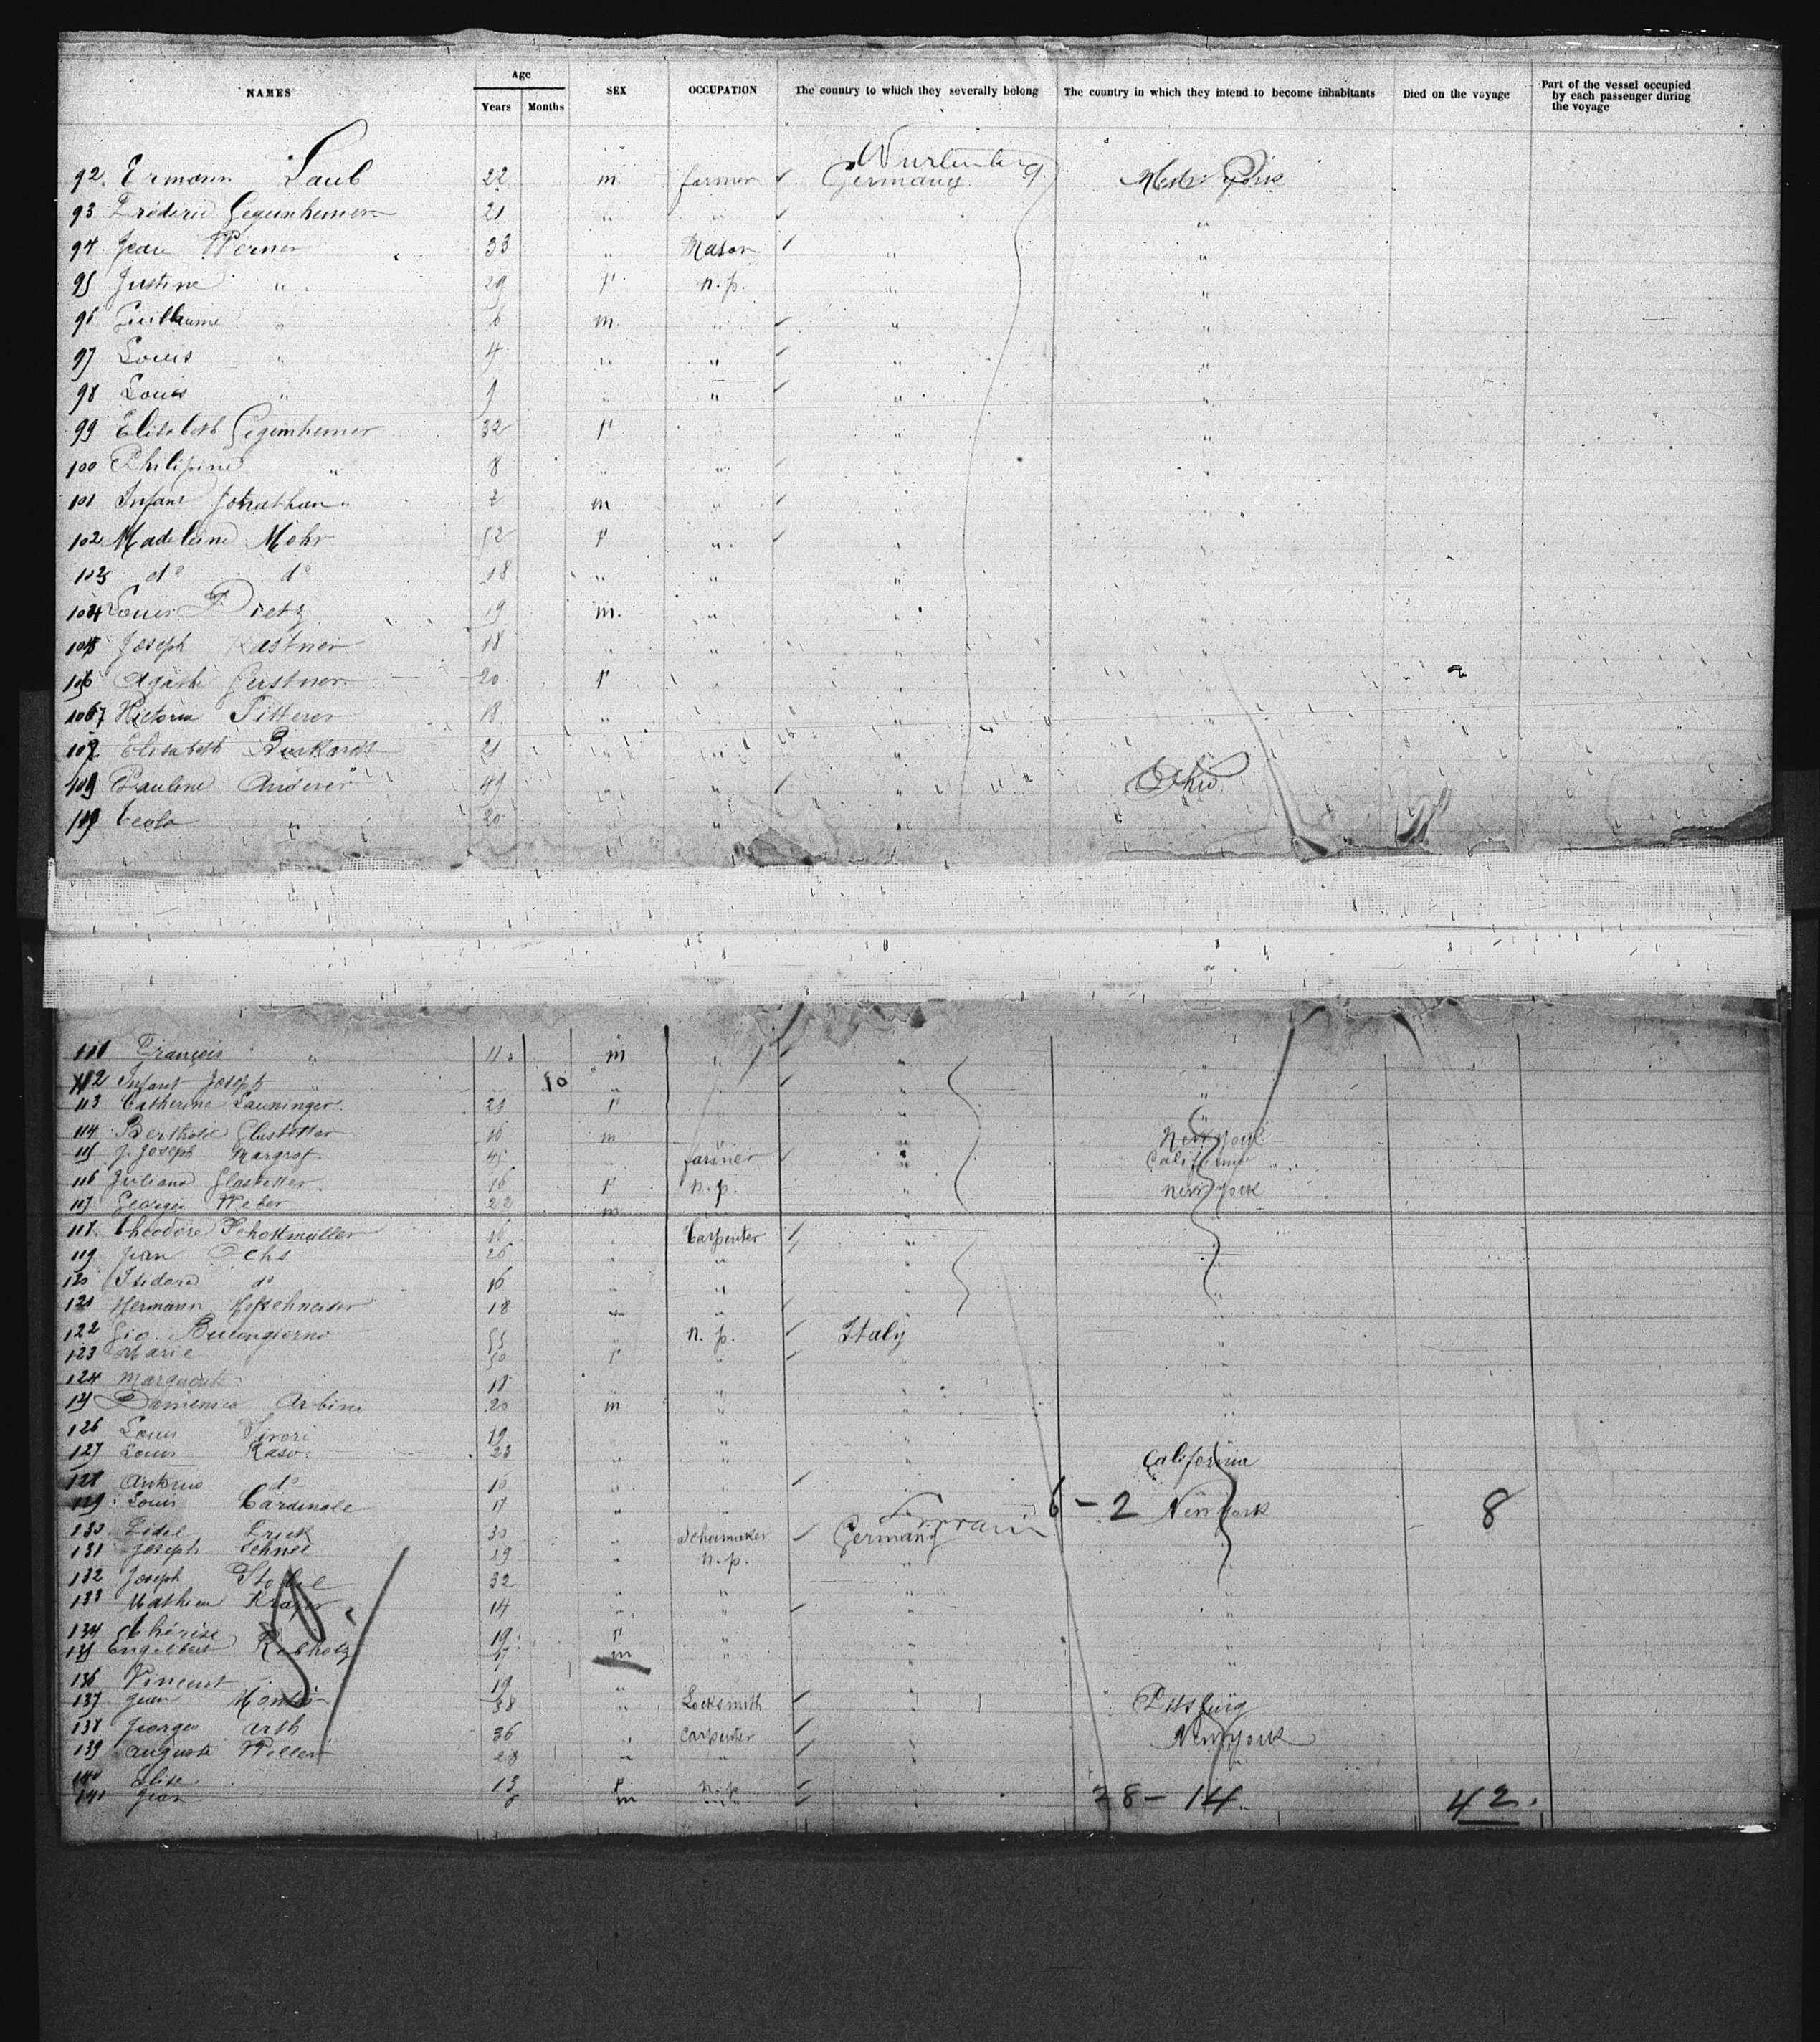 NAMES Age Years Months SEX OCCUPATION The country to which they severally belong The country in which they intend to become inhabitants Died on the voyage Part of the vessel occupied by each passenger during the voyage
Wurtemberg
92. Ermann Laub 22 m. farmer Germany New York
93 Frédéric Gegenheimer 21 " " "
94 Jean Werner 33 " Mason " "
95 Justine " 29 f n.p. " "
96 Guillaume " 6 m. " " "
97 Louis " 4 " " " "
98 Louis " " " " "
99 Elisabeth Gegenheimer 32 f " "
100 Philipine " 8 " " " "
101 Infant Jonathan 2 m " "
102 Madeleine Mohr 52 f " "
103 do do 18 " " "
104 Louis Dietz 19 m. " "
Joseph Kastner 18 " " "
106 Agathe Gerstner 20 f " "
Victoria Pitterer 18 " "
Elisabeth Burkardt 21 " " "
109 Pauline Anderer 49 " " " Ohio
" 20 " "
111 François " 11 m " " "
112 Infant Joseph " 10 " " " "
113 Catherine 21 f " " "
114 Berthold Glastetter 16 m " " New York
115 J. Joseph Margraf 45 " farmer " California
116 Juliana Glastetter 16 f n.p. " New York
117 Georges Weber 22 m "
118. Theodore Schottmüller 16 " Carpenter "
119 Jean Ochs 26 " " " "
120 Isidore do 16 " " "
121 Hermann 18 " " "
122 Gio. Buongiorno 55 " n. p. Italy "
123 Marie 50 f " " "
124 Marguerite 18 " " " "
125 Domenico Arbini 20 m " " "
126 Louis Sivori 19 " " "
127 Louis Raso 23 " " " California
128 Antonio do 16 " "
129 Louis Cardinale 17 " " 6 - 2 New York 8
Lorrain
130 Fidel Frick 30 " Schumaker Germany
131 Joseph Lehnel 19 " n.p. "
132 Joseph 32 " " " "
133 Mathieu 14 " " " "
134 Thérèse 19 f " " "
135 Engelbert Rebholz m " "
136 Vincent 19 " "
137 Jean 38 " Locksmith " Pitsburg
138 Georges Arth 36 " Carpenter " New York
139 Auguste 28 " " "
140 Elise 13 f n.p. "
141 Jean 8 m " " 28 - 14 42.